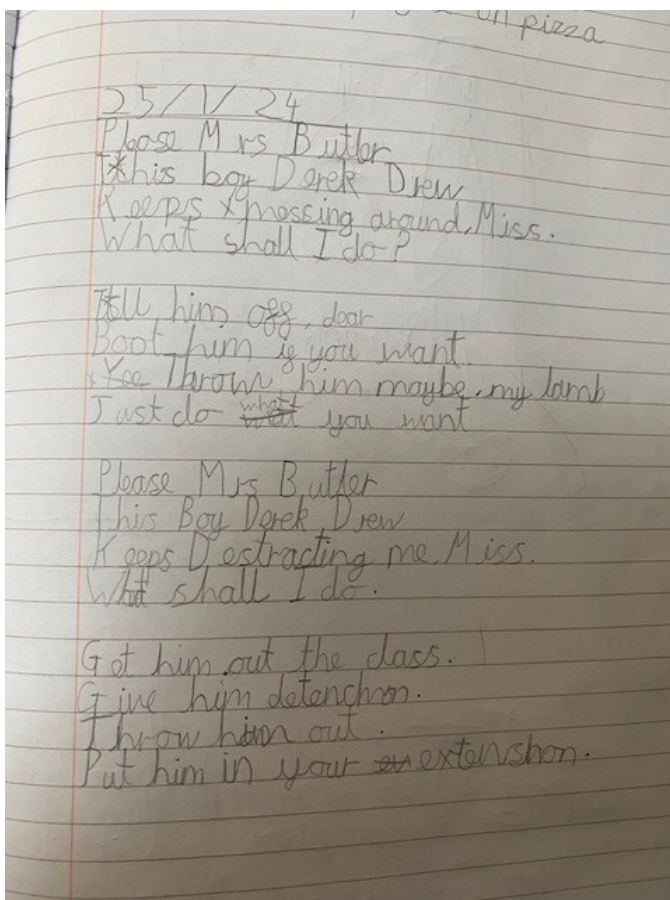 on pizza
25/1/24
Please Mrs Butler
This boy Derek Drew
Keeps messing around, Miss.
What shall I do?
Tell him off, dear
Boot him if you want.
Throw him maybe, my lamb
Just do what you want
Please Mrs Butler
this Boy Derek Drew
Keeps Destracting me, Miss.
What shall I do.
Get him out the class.
Give him detenchon.
Throw him out.
Put him in your extenshon.